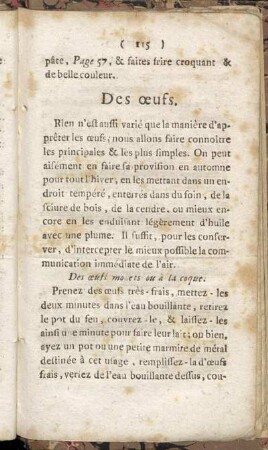 ( 115 )
pâte, Page 57, & faites frire croquant &
de belle couleur.
Des œufs.
Rien n'est aussi varié que la manière d'ap-
prêter les œufs; nous allons faire connoitre
les principales & les plus simples. On peut
aisément en faire sa provision en automne
pour tout l'hiver, en les mettant dans un en-
droit tempéré, enterrés dans du foin, de la
sciure de bois, de la cendre, ou mieux encore
en les enduisant légèrement d'huile
avec une plume. Il suffit, pour les conser-
ver, d'intercepter le mieux possible la com-
munication immédiate de l'air.
Des œufs mollets ou à la coque.
Prenez des œufs très-frais, mettez-les
deux minutes dans l'eau bouillante, retirez
le pot du feu, couvrez-le, & laissez-les
ainsi une minute pour faire leur lait; ou bien,
ayez un pot ou une petite marmite de métal
destinée à cet usage, remplissez-la d'œufs
frais, versez de l'eau bouillante dessus, cou-